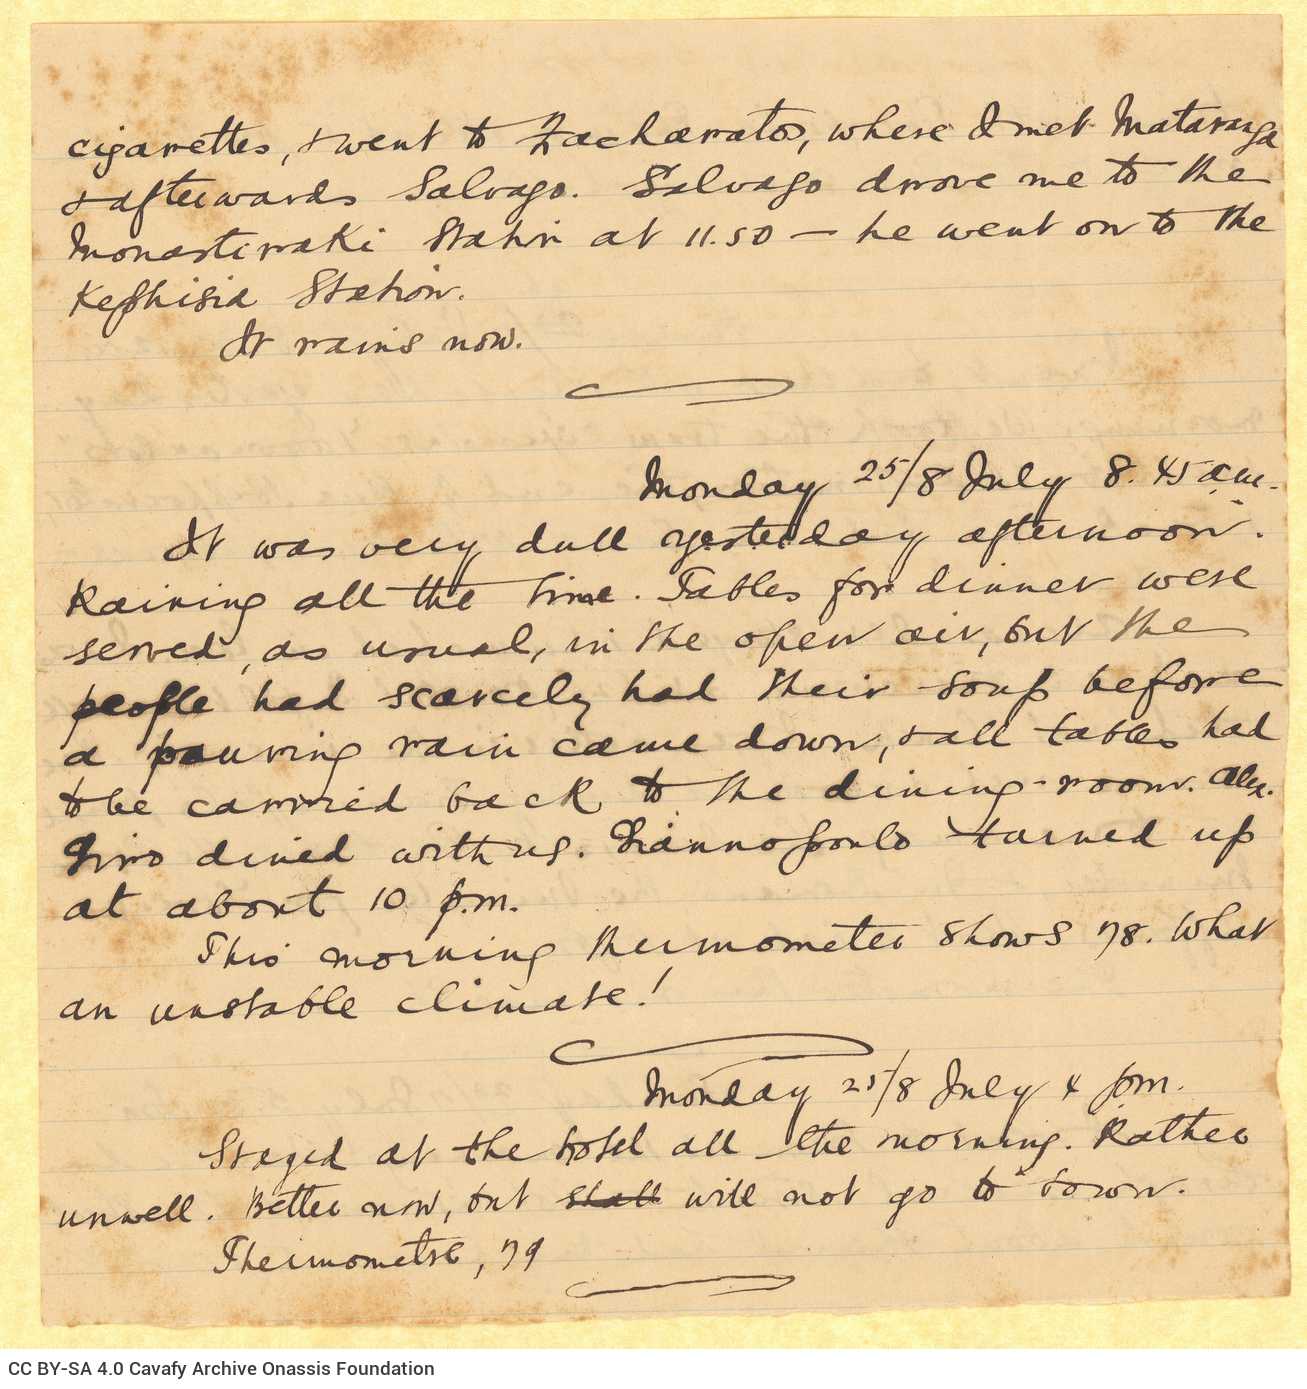 cigarettes, & went to Zacharatos, where I met Mataranga
& afterwards Salvago. Salvago drove me to the
Monastiraki Station at 11.50 — he went on to the
Kephisia Station.
It rains now.
Monday 25/8 July 8.45 a.m.
It was very dull yesterday afternoon.
Raining all the time. Tables for dinner were
served, as usual, in the open air, but the
people had scarcely had their soup before
a pouring rain came down, & all tables had
to be carried back to the dining-room. Alex.
Giro dined with us. Giannopoulo turned up
at about 10 p.m.
This morning thermometer shows 78. What
an unstable climate!
Monday 25/8 July 4 p.m.
Stayed at the hotel all the morning. Rather
unwell. Better now, but shall will not go to town.
Thermometre, 79
CC BY-SA 4.0 Cavafy Archive Onassis Foundation